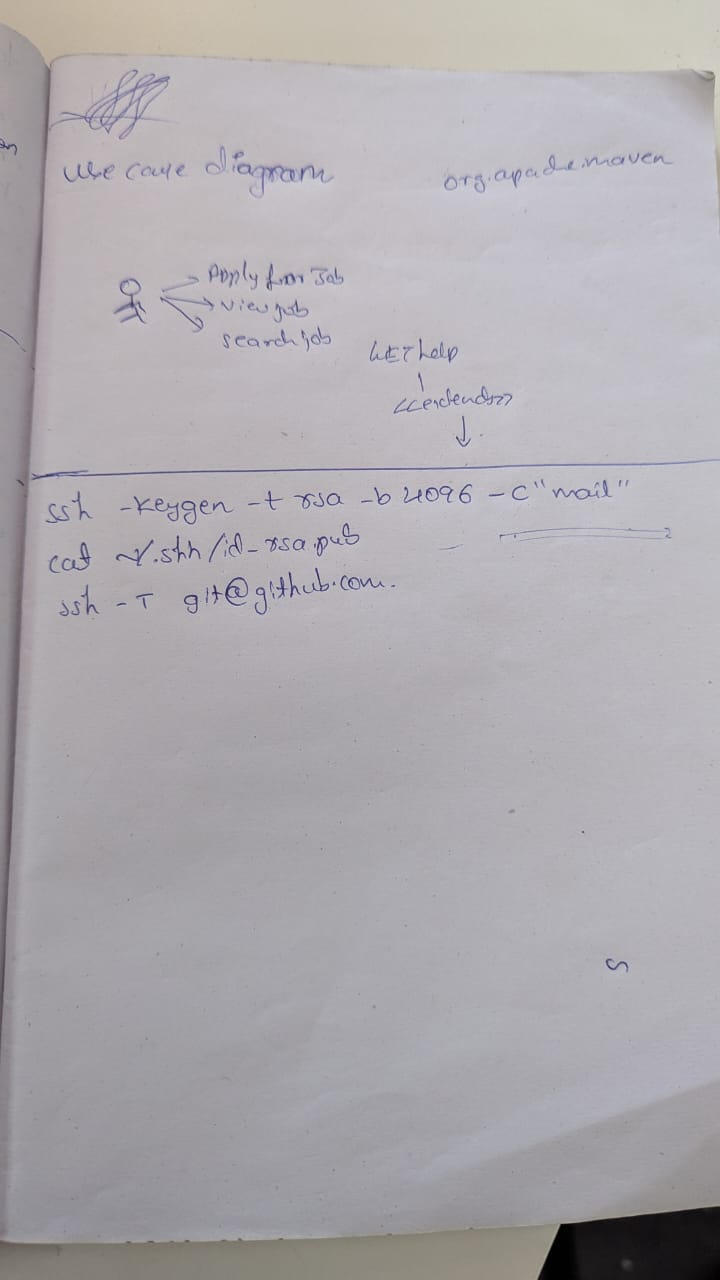 use case diagram
org.apache.maven
Apply for Job
view job
search job
GET help
<<extends>>
ssh -keygen -t rsa -b 4096 -C "mail"
cat ~/.shh/id_rsa.pub
ssh -T git@github.com.